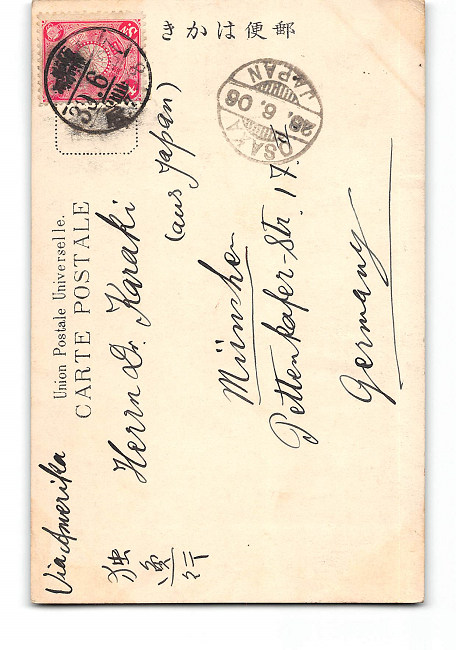 郵便はかき
Union Postale Universelle.
CARTE POSTALE
OSAKA
28.6.06
JAPAN
39.6
Via Amerika
Herrn Dr. Karaki
(aus Japan)
München
Pettenkofer-Str. 17 II
Germany
独
行